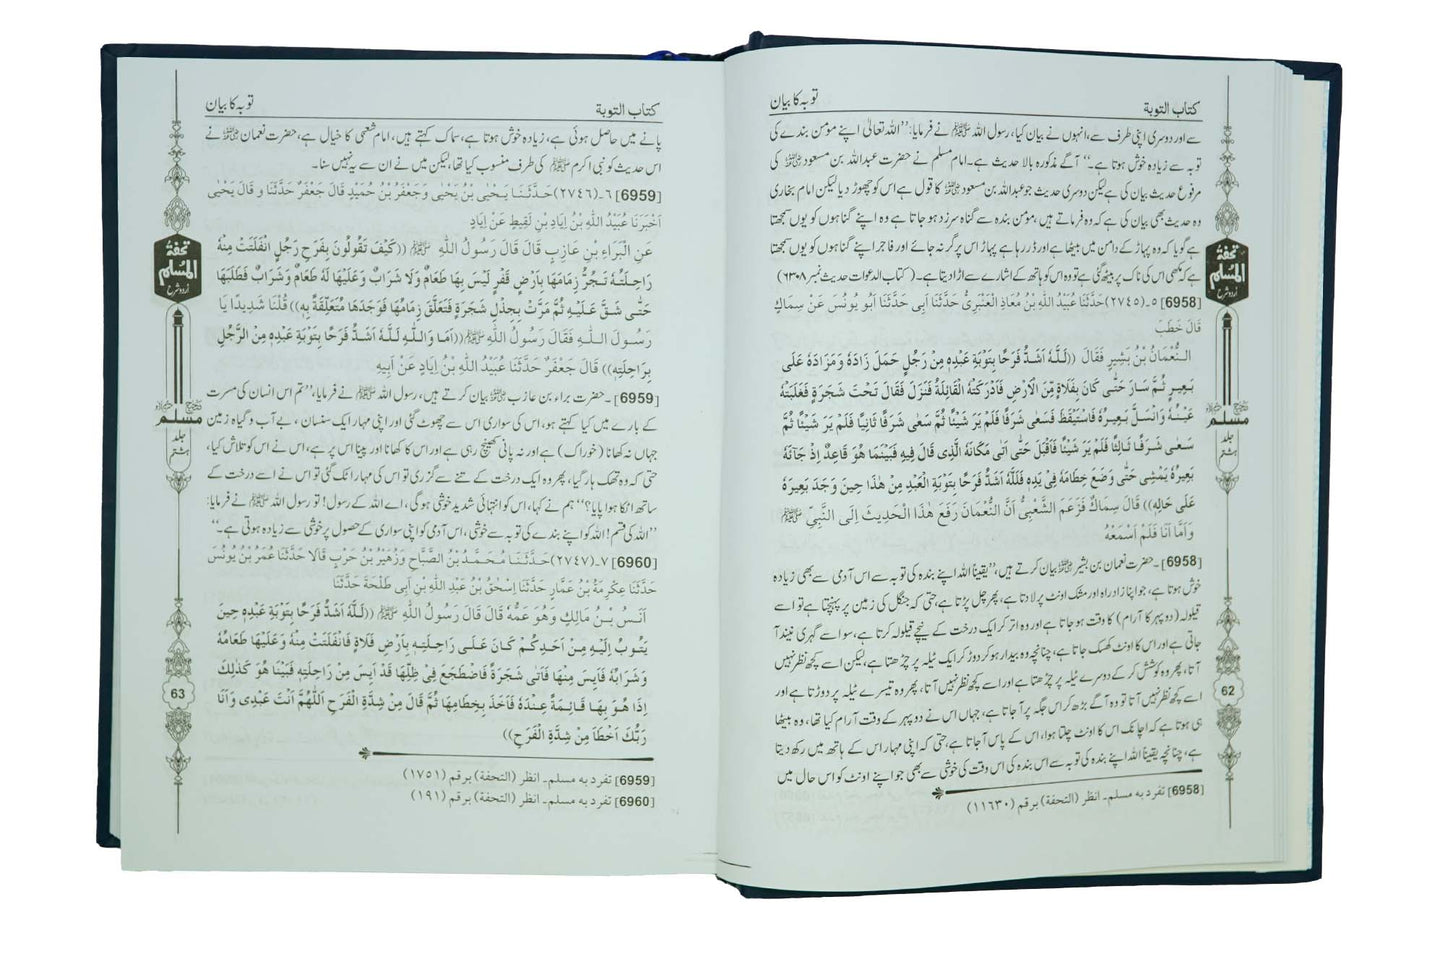 کتاب التوبة
توبہ کا بیان
سے اور دوسری اپنی طرف سے، انہوں نے بیان کیا، رسول اللہ ﷺ نے فرمایا: ’’اللہ تعالیٰ اپنے مؤمن بندے کی
توبہ سے زیادہ خوش ہوتا ہے۔‘‘ آگے مذکورہ بالا حدیث ہے۔ امام مسلم نے حضرت عبداللہ بن مسعود رضی اللہ عنہ کی
مرفوع حدیث بیان کی ہے لیکن دوسری حدیث جو عبداللہ بن مسعود رضی اللہ عنہ کا قول ہے اس کو چھوڑ دیا لیکن امام بخاری
وہ حدیث بھی بیان کی ہے کہ وہ فرماتے ہیں، مؤمن بندہ سے گناہ سرزد ہو جاتا ہے وہ اپنے گناہوں کو یوں سمجھتا
ہے گویا کہ وہ پہاڑ کے دامن میں بیٹھا ہے اور ڈر رہا ہے پہاڑ اس پر گر نہ جائے اور فاجر اپنے گناہوں کو یوں سمجھتا
ہے کہ مکھی اس کی ناک پر بیٹھ گئی ہے تو وہ اس کو ہاتھ کے اشارے سے اڑا دیتا ہے۔ (کتاب الدعوات حدیث نمبر ۶۳۰۸)
[6958] ۵۔(۲۷۴۵) حَدَّثَنَا عُبَيْدُ اللّٰهِ بْنُ مُعَاذٍ الْعَنْبَرِيُّ حَدَّثَنَا أَبِى حَدَّثَنَا أَبُو يُونُسَ عَنْ سِمَاكٍ
قَالَ خَطَبَ
النُّعْمَانُ بْنُ بَشِيرٍ فَقَالَ ((لَلّٰهُ أَشَدُّ فَرَحًا بِتَوْبَةِ عَبْدِهِ مِنْ رَجُلٍ حَمَلَ زَادَهُ وَمَزَادَهُ عَلَى
بَعِيرٍ ثُمَّ سَارَ حَتَّى كَانَ بِفَلَاةٍ مِّنَ الْأَرْضِ فَأَدْرَكَتْهُ الْقَائِلَةُ فَنَزَلَ فَقَالَ تَحْتَ شَجَرَةٍ فَغَلَبَتْهُ
عَيْنُهُ وَانْسَلَّ بَعِيرُهُ فَاسْتَيْقَظَ فَسَعَى شَرَفًا فَلَمْ يَرَ شَيْئًا ثُمَّ سَعَى شَرَفًا ثَانِيًا فَلَمْ يَرَ شَيْئًا ثُمَّ
سَعَى شَرَفًا ثَالِثًا فَلَمْ يَرَ شَيْئًا فَأَقْبَلَ حَتَّى أَتَى مَكَانَهُ الَّذِى قَالَ فِيهِ فَبَيْنَمَا هُوَ قَاعِدٌ إِذْ جَاءَهُ
بَعِيرُهُ يَمْشِى حَتَّى وَضَعَ خِطَامَهُ فِى يَدِهِ فَلَلّٰهُ أَشَدُّ فَرَحًا بِتَوْبَةِ الْعَبْدِ مِنْ هٰذَا حِينَ وَجَدَ بَعِيرَهُ
عَلَى حَالِهِ)) قَالَ سِمَاكٌ فَزَعَمَ الشَّعْبِيُّ أَنَّ النُّعْمَانَ رَفَعَ هٰذَا الْحَدِيثَ إِلَى النَّبِيِّ ﷺ
وَأَمَّا أَنَا فَلَمْ أَسْمَعْهُ
[6958]۔ حضرت نعمان بن بشیر رضی اللہ عنہ بیان کرتے ہیں، ’’یقیناً اللہ اپنے بندہ کی توبہ سے اس آدمی سے بھی زیادہ
خوش ہوتا ہے، جو اپنا زاد راہ اور مشک اونٹ پر لادتا ہے، پھر چل پڑتا ہے حتی کہ جنگل کی زمین پر پہنچتا ہے تو اسے
قیلولہ (دوپہر کا آرام) کا وقت ہو جاتا ہے اور وہ اتر کر ایک درخت کے نیچے قیلولہ کرتا ہے، سو اسے گہری نیند آ
جاتی ہے اور اس کا اونٹ کھسک جاتا ہے، چنانچہ وہ بیدار ہو کر دوڑ کر ایک ٹیلہ پر چڑھتا ہے، لیکن اسے کچھ نظر نہیں
آتا، پھر وہ کوشش کر کے دوسرے ٹیلہ پر چڑھتا ہے اور اسے کچھ نظر نہیں آتا، پھر وہ تیسرے ٹیلہ پر دوڑتا ہے اور
اسے کچھ نظر نہیں آتا تو وہ آگے بڑھ کر اس جگہ پر آ جاتا ہے، جہاں اس نے دوپہر کے وقت آرام کیا تھا، وہ بیٹھا
ہی ہوتا ہے کہ اچانک اس کا اونٹ چلتا ہوا، اس کے پاس آ جاتا ہے، حتی کہ اپنی مہار اس کے ہاتھ میں رکھ دیتا
ہے، چنانچہ یقیناً اللہ اپنے بندہ کی توبہ سے اس بندہ کی اس وقت کی خوشی سے بھی جو اپنے اونٹ کو اس حال میں
[6958] تفرد به مسلم۔ انظر (التحفة) برقم (۱۱۶۳۰)
تحفة
المسلم
اردو شرح
صحیح
مسلم
جلد
ہشتم
62
کتاب التوبة
توبہ کا بیان
پانے میں حاصل ہوئی ہے، زیادہ خوش ہوتا ہے، سماک کہتے ہیں، امام شعبی کا خیال ہے، حضرت نعمان رضی اللہ عنہ نے
اس حدیث کو نبی اکرم ﷺ کی طرف منسوب کیا تھا، لیکن میں نے ان سے یہ نہیں سنا۔
[6959] ۶۔(۲۷۴۶) حَدَّثَنَا يَحْيَى بْنُ يَحْيَى وَجَعْفَرُ بْنُ حُمَيْدٍ قَالَ جَعْفَرٌ حَدَّثَنَا و قَالَ يَحْيَى
أَخْبَرَنَا عُبَيْدُ اللّٰهِ بْنُ إِيَادِ بْنِ لَقِيطٍ عَنْ إِيَادٍ
عَنِ الْبَرَاءِ بْنِ عَازِبٍ قَالَ قَالَ رَسُولُ اللّٰهِ ﷺ ((كَيْفَ تَقُولُونَ بِفَرَحِ رَجُلٍ انْفَلَتَتْ مِنْهُ
رَاحِلَتُهُ تَجُرُّ زِمَامَهَا بِأَرْضٍ قَفْرٍ لَيْسَ بِهَا طَعَامٌ وَلَا شَرَابٌ وَعَلَيْهَا لَهُ طَعَامٌ وَشَرَابٌ فَطَلَبَهَا
حَتَّى شَقَّ عَلَيْهِ ثُمَّ مَرَّتْ بِجِذْلِ شَجَرَةٍ فَتَعَلَّقَ زِمَامُهَا فَوَجَدَهَا مُتَعَلِّقَةً بِهِ)) قُلْنَا شَدِيدًا يَا
رَسُولَ اللّٰهِ فَقَالَ رَسُولُ اللّٰهِ ﷺ ((أَمَا وَاللّٰهِ لَلّٰهُ أَشَدُّ فَرَحًا بِتَوْبَةِ عَبْدِهِ مِنَ الرَّجُلِ
بِرَاحِلَتِهِ)) قَالَ جَعْفَرٌ حَدَّثَنَا عُبَيْدُ اللّٰهِ بْنُ إِيَادٍ عَنْ أَبِيهِ
[6959]۔ حضرت براء بن عازب رضی اللہ عنہ بیان کرتے ہیں، رسول اللہ ﷺ نے فرمایا، ’’تم اس انسان کی مسرت
کے بارے میں کیا کہتے ہو، اس کی سواری اس سے چھوٹ گئی اور اپنی مہار ایک سنسان، بے آب و گیاہ زمین
جہاں نہ کھانا (خوراک) ہے اور نہ پانی کھینچ رہی ہے اور اس کا کھانا اور پینا اس پر ہے، اس نے اس کو تلاش کیا
حتی کہ وہ تھک ہار گیا، پھر وہ ایک درخت کے تنے سے گزری تو اس کی مہار اٹک گئی تو اس نے اسے درخت کے
ساتھ اٹکا ہوا پایا؟‘‘ ہم نے کہا، اس کو انتہائی شدید خوشی ہو گی، اے اللہ کے رسول! تو رسول اللہ ﷺ نے فرمایا:
’’اللہ کی قسم! اللہ کو اپنے بندے کی توبہ سے خوشی، اس آدمی کو اپنی سواری کے حصول پر خوشی سے زیادہ ہوتی ہے۔‘‘
[6960] ۷۔(۲۷۴۷) حَدَّثَنَا مُحَمَّدُ بْنُ الصَّبَّاحِ وَزُهَيْرُ بْنُ حَرْبٍ قَالَا حَدَّثَنَا عُمَرُ بْنُ يُونُسَ
حَدَّثَنَا عِكْرِمَةُ بْنُ عَمَّارٍ حَدَّثَنَا إِسْحٰقُ بْنُ عَبْدِ اللّٰهِ بْنِ أَبِى طَلْحَةَ حَدَّثَنَا
أَنَسُ بْنُ مَالِكٍ وَهُوَ عَمُّهُ قَالَ قَالَ رَسُولُ اللّٰهِ ﷺ ((لَلّٰهُ أَشَدُّ فَرَحًا بِتَوْبَةِ عَبْدِهِ حِينَ
يَتُوبُ إِلَيْهِ مِنْ أَحَدِكُمْ كَانَ عَلَى رَاحِلَتِهِ بِأَرْضِ فَلَاةٍ فَانْفَلَتَتْ مِنْهُ وَعَلَيْهَا طَعَامُهُ
وَشَرَابُهُ فَأَيِسَ مِنْهَا فَأَتَى شَجَرَةً فَاضْطَجَعَ فِى ظِلِّهَا قَدْ أَيِسَ مِنْ رَاحِلَتِهِ فَبَيْنَا هُوَ كَذٰلِكَ
إِذَا هُوَ بِهَا قَائِمَةً عِنْدَهُ فَأَخَذَ بِخِطَامِهَا ثُمَّ قَالَ مِنْ شِدَّةِ الْفَرَحِ اللّٰهُمَّ أَنْتَ عَبْدِى وَأَنَا
رَبُّكَ أَخْطَأَ مِنْ شِدَّةِ الْفَرَحِ))
[6959] تفرد به مسلم۔ انظر (التحفة) برقم (۱۷۵۱)
[6960] تفرد به مسلم۔ انظر (التحفة) برقم (۱۹۱)
تحفة
المسلم
اردو شرح
صحیح
مسلم
جلد
ہشتم
63